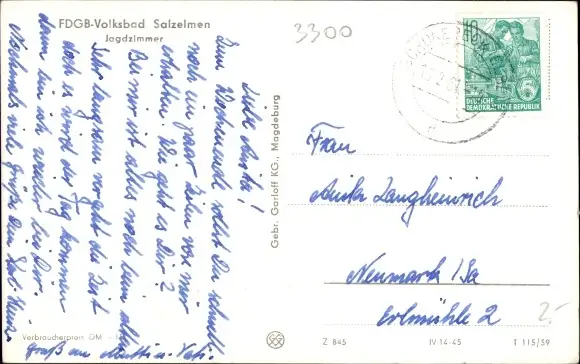 FDGB-Volksbad Salzelmen
Jagdzimmer
3300
10
DEUTSCHE
DEMOKRATISCHE REPUBLIK
Liebe Anita!
Zum Wochenende sollst Du schnell
noch ein paar Zeilen von mir
erhalten. Wie geht es Dir?
Bei mir ist alles noch beim alten.
Sehr langsam vergeht die Zeit
doch es wird der Tag kommen
dann bin ich wieder bei Dir.
Nochmals viele Grüße Dein
Gruß an Mutti u. Vati.
Gebr. Garloff KG., Magdeburg
Frau
Anita Langheinrich
Neumark i/Sa
Erlmühle 2
2-
Verbraucherpreis DM
Z 845
IV-14-45
T 115/59